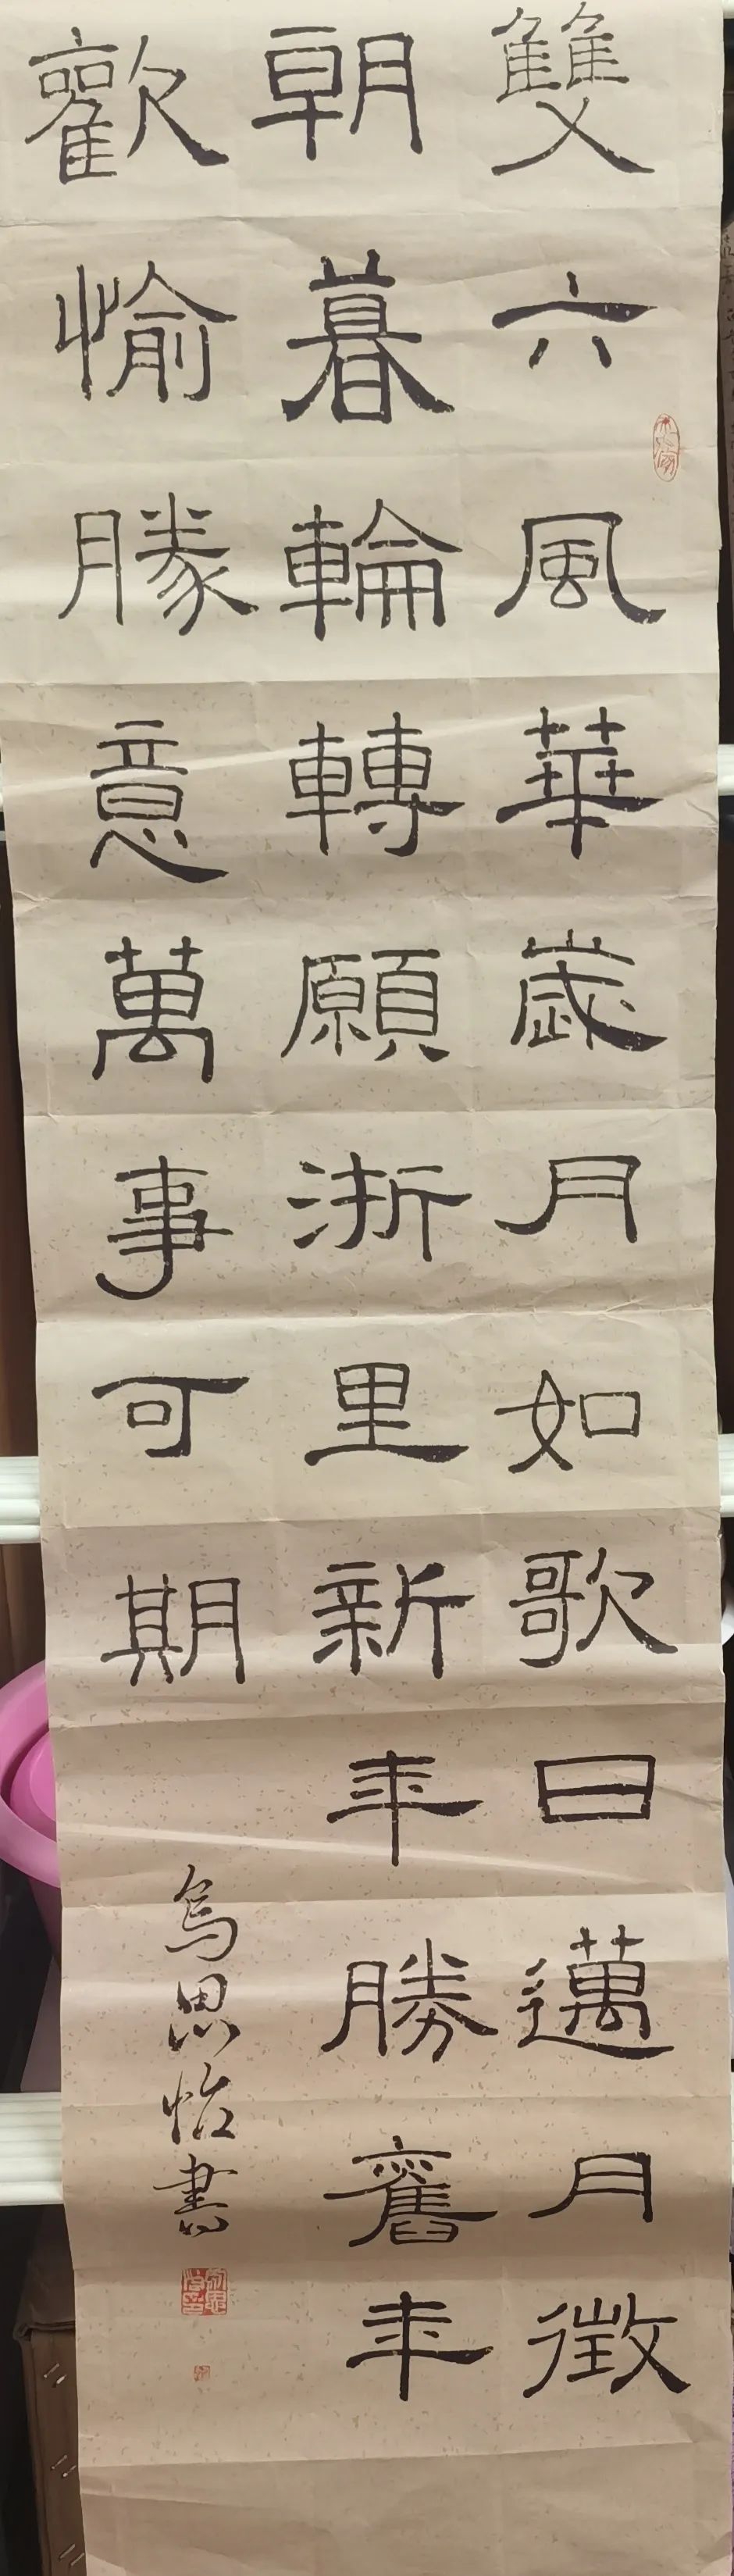 雙六風華歲月如歌日邁月徵
朝暮輪轉願浙里新年勝舊年
歡愉勝意萬事可期
烏思怡書